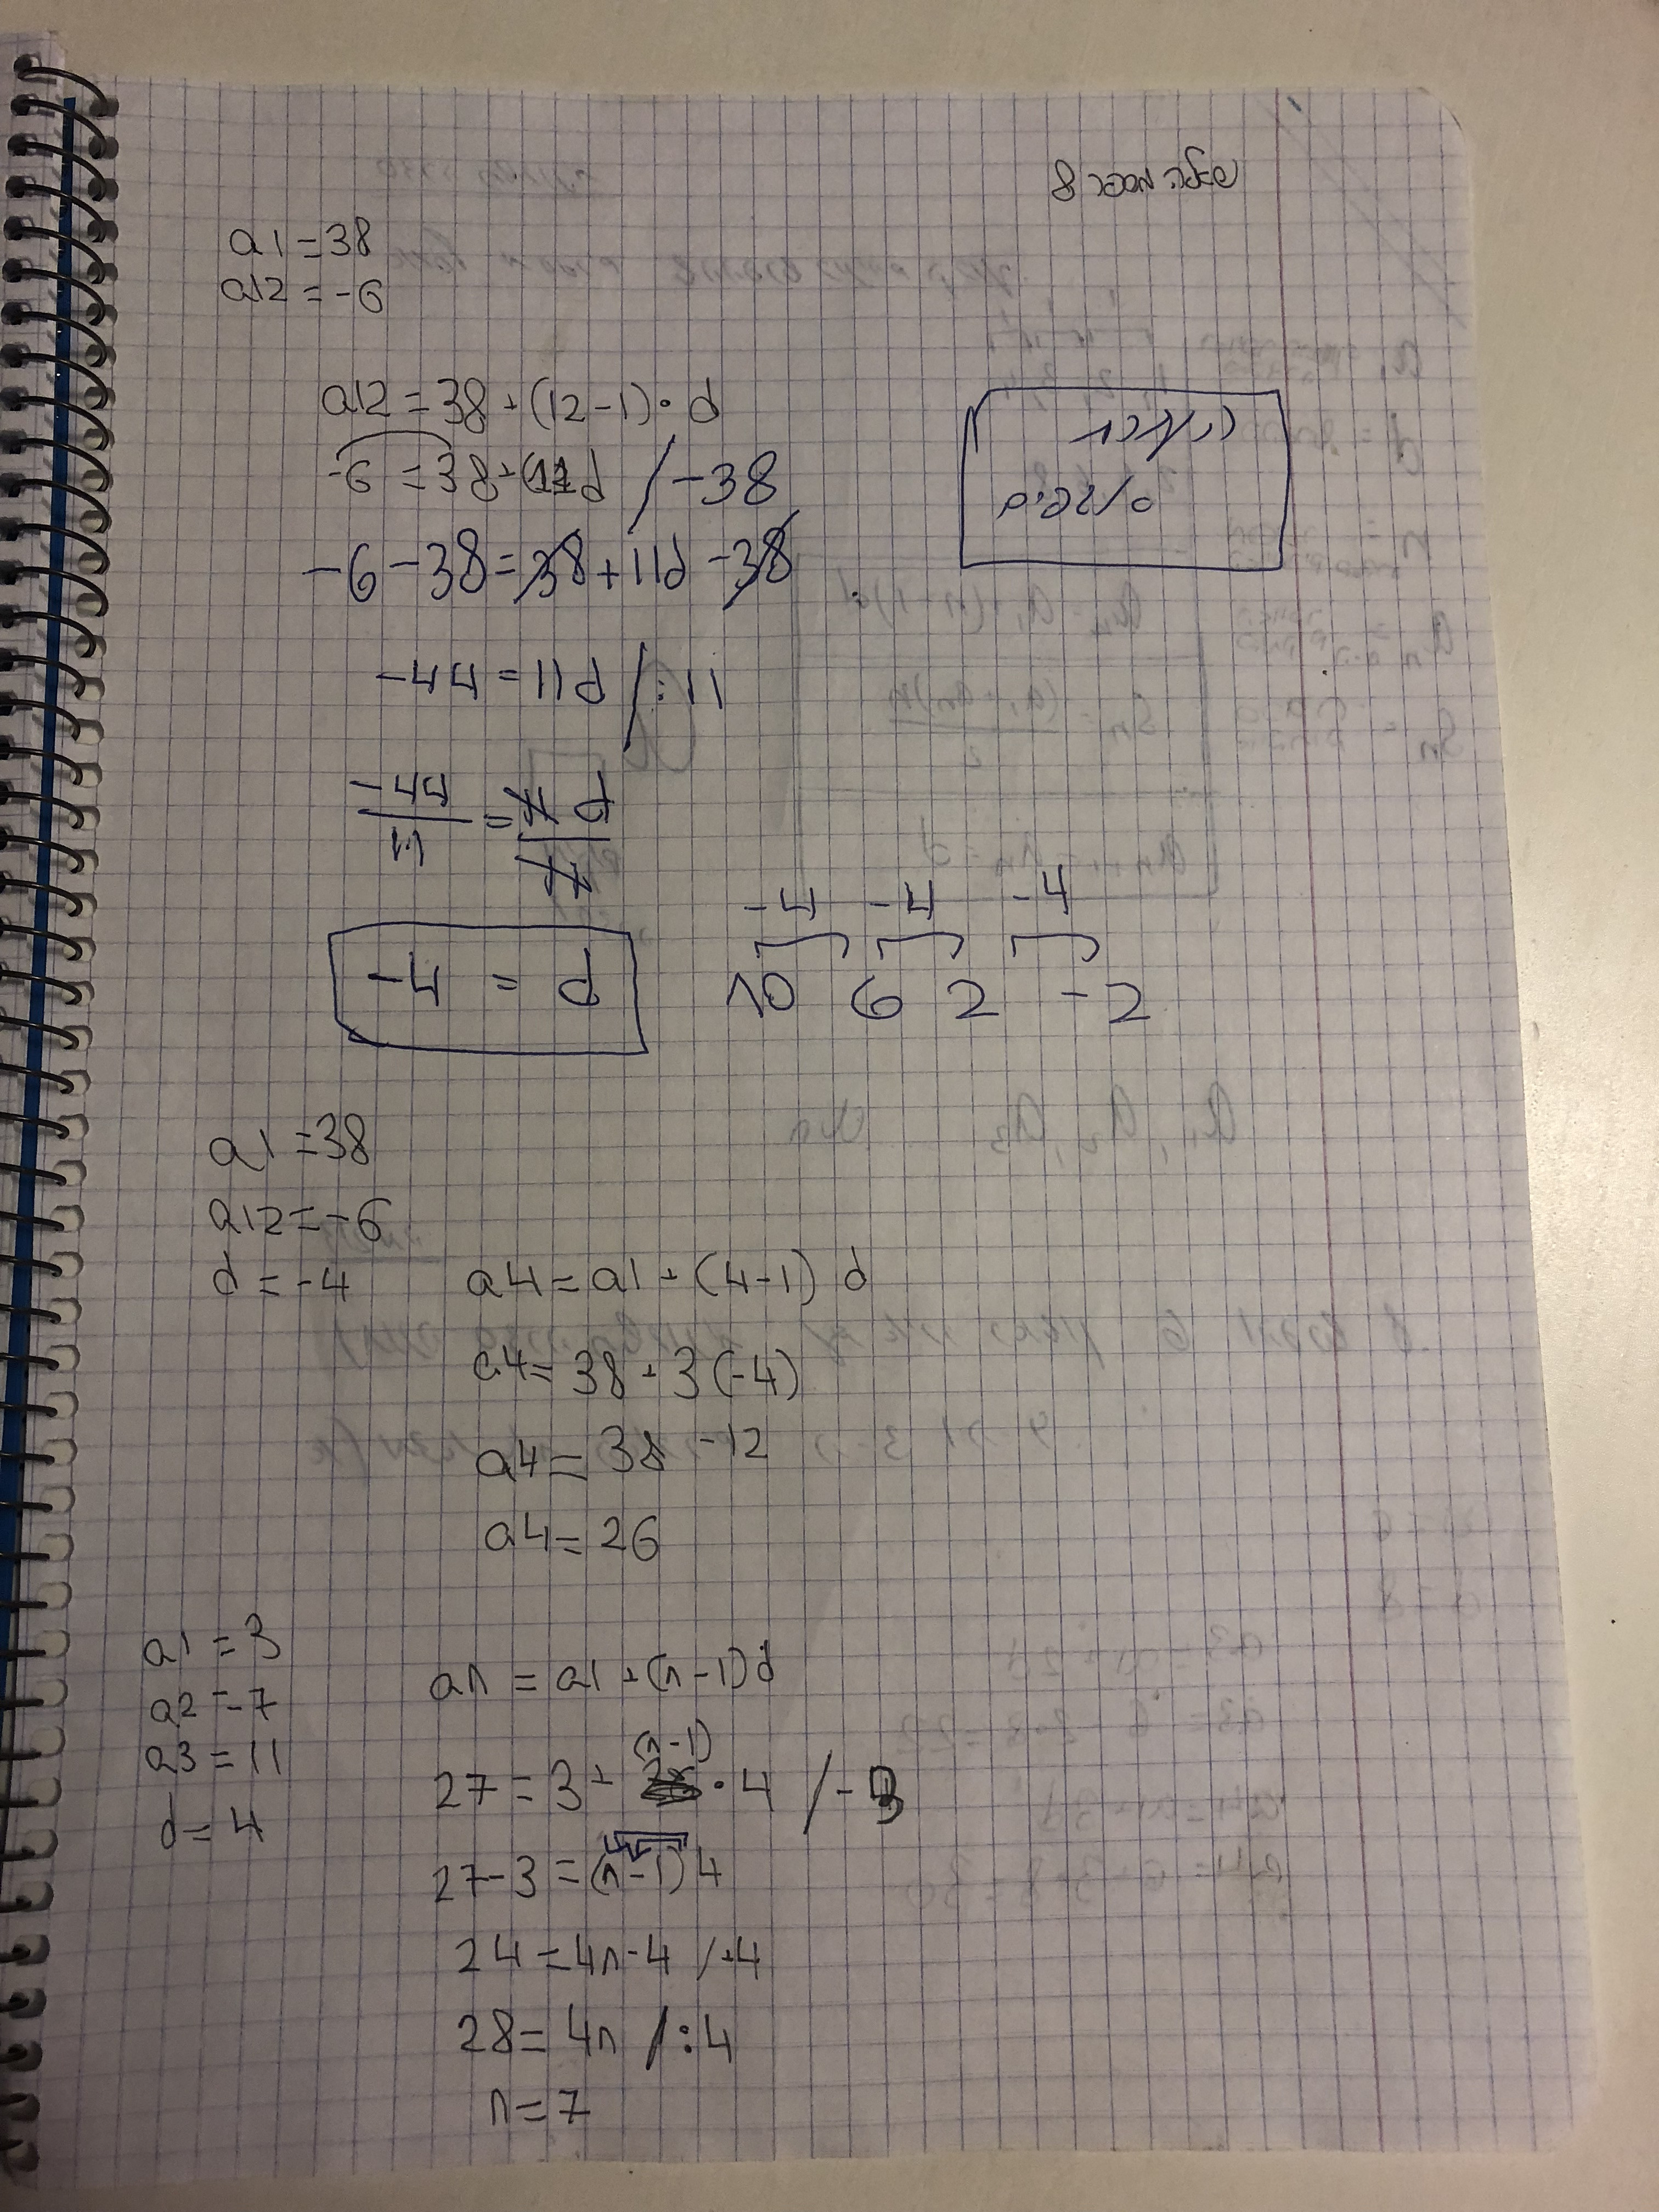 שאלה מספר 8
a1=38
a12=-6
a12=38+(12-1)·d
-6=38+(11d /-38
-6-38=38+11d-38
-44=11d /:11
-44/11=11d/11
-4 = d
-4 -4 -4
10 6 2 -2
a1=38
a12=-6
d=-4
a4=a1+(4-1)d
a4=38+3(-4)
a4=38-12
a4=26
a1=3
a2=7
a3=11
d=4
an=a1+(n-1)d
(n-1)
27=3+ ·4 /-3
27-3=(n-1)4
24=4n-4 /+4
28=4n /:4
n=7